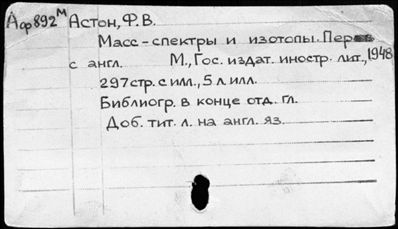 Аф892м Астон, Ф. В.
Масс-спектры и изотопы. Пер
с англ. М., Гос. издат. иностр. лит., 1948
297 стр. с илл., 5 л. илл.
Библиогр. в конце отд. гл.
Доб. тит. л. на англ. яз.